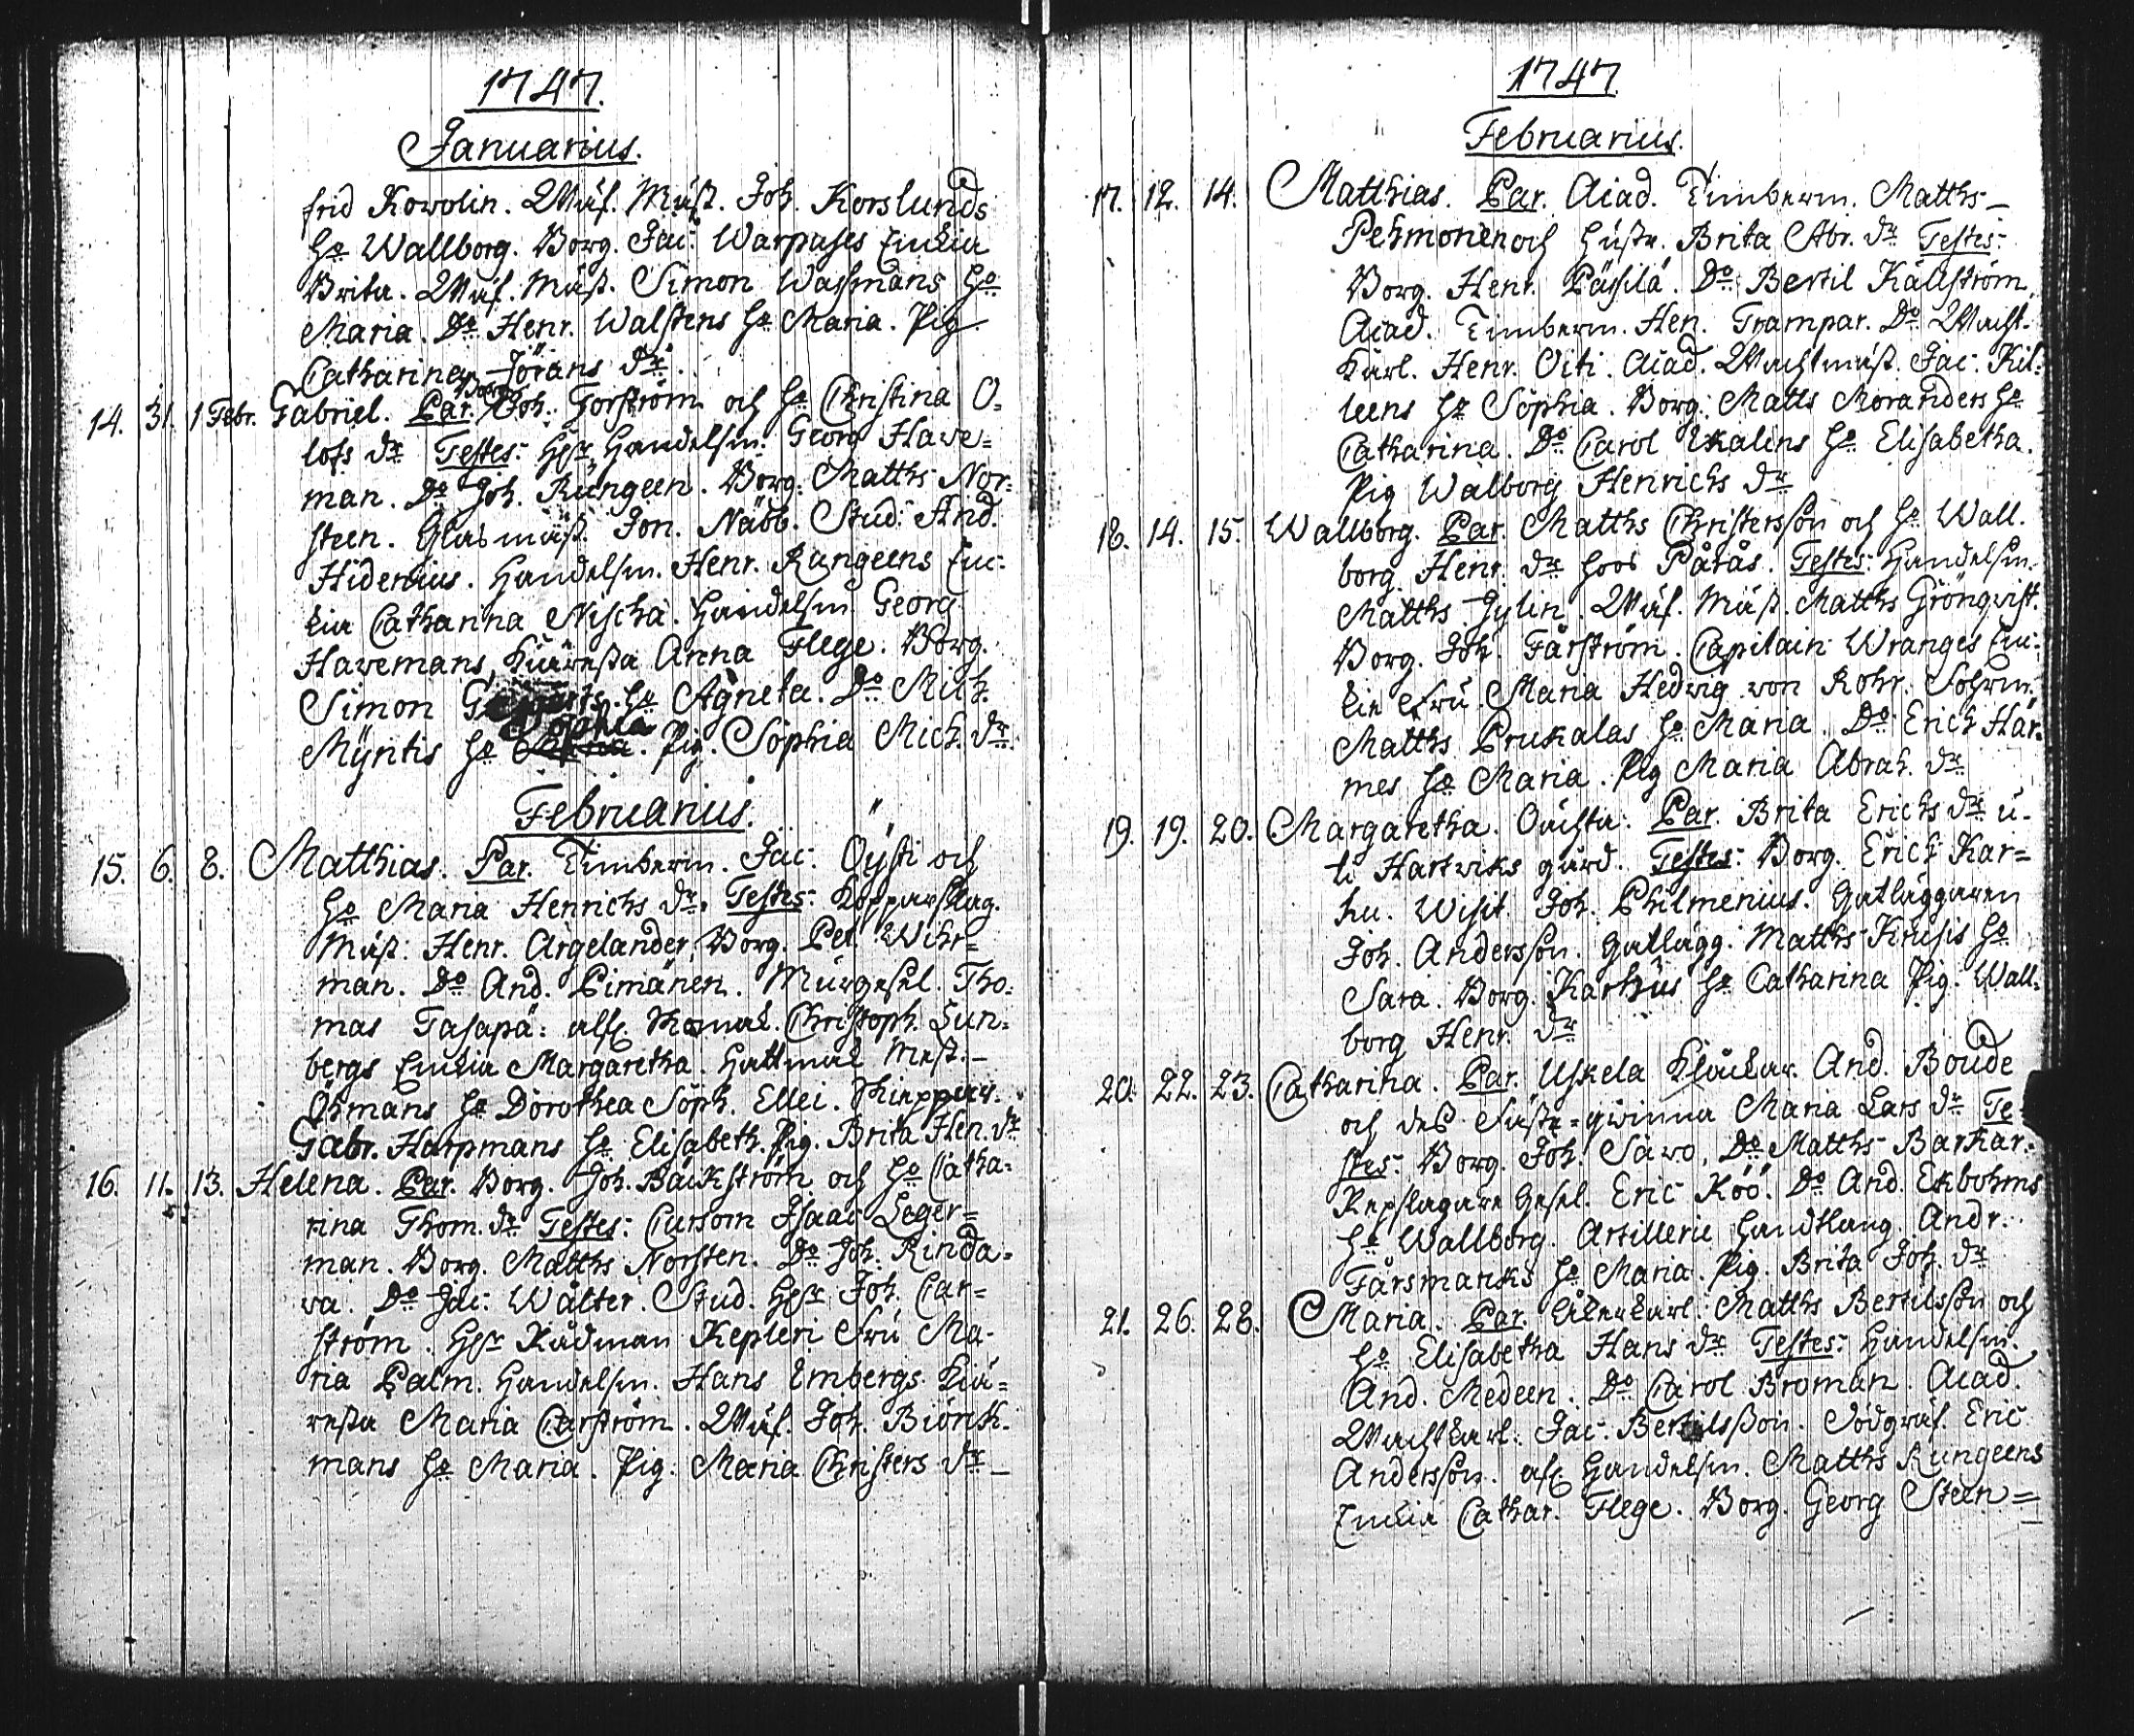 1747.
Januarius.
frid Kowolin. Wäf. Mäst. Joh. Korslunds
Ho Wallborg. Borg. Jac: Warpases Enckia
Brita. Wäf. Mäst. Simon Wassmans Ho
Maria. Do Henr. Walstens Ho Maria. Pig
Catharina Jörans dr.
14. 31. 1 Febr. Gabriel. Par. Borg. Joh. Forström och Ho Christina O=
lofs dr Testes: Hr Handelsm. Georg Hawe=
man. Do Joh. Rungeen. Borg. Matths Nor=
steen. Glasmäst. Jon. Näbb. Stud. And.
Hidenius. Handelsm. Henr. Rungeens Enc=
kia Catharina Nischa. Handelsm Georg
Hawemans Käresta Anna Flege. Borg.
Simon Ho Agneta. Do Mich.
Myntis Ho Sophia. Pig. Sophia Mich. dr.
Februarius.
15. 6. 8. Matthias. Par. Timberm. Jac: Öysti och
Ho Maria Henrichs dr. Testes: Kopparslag.
Mäst: Henr. Argelander, Borg. Pet. Wihr=
man. Do And. Pimänen. Murgesel. Tho=
mas Tasapä: Christoph. Lun=
bergs Enckia Margaretha. Hattmak Mest.
Öhmans Ho Dorothea Soph. Ellei.
Gabr. Harpmans Ho Elisabeth. Pig. Brita Hen. dr
16. 11. 13. Helena. Par. Borg. Joh. Bäckström och Ho Catha=
rina Thom. dr Testes: Isaac Leger=
man. Borg. Matths Norsten. Do Joh. Rinda=
wa. Do Jac: Wälter. Stud. Hr Joh. Car=
ström. Hr Rådman Kepleri Fru Ma=
ria Palm. Handelsm. Hans Embergs Kiä=
resta Maria Carström. Wäf. Joh. Biörck=
mans Ho Maria. Pig: Maria Christers dr
1747.
Februarius.
17. 12. 14. Matthias. Par. Acad. Timberm. Matths
Pehmonen och Hustr. Brita Abr. dr Testes:
Borg. Henr. Pässilä. Do Bertil Källström.
Acad. Timberm. Hen. Trampar. Do Wacht=
Karl. Henr. Oiti. Acad. Wachtmäst. Jac: Kil=
leens Ho Sophia. Borg: Matts Moranders Ho
Catharina. Do Carol Ekalens Ho Elisabetha.
Pig Walborg Henrichs dr
18. 14. 15. Wallborg. Par. Matths Christersson och Ho Wall.
borg Henr. dr hoos Påtås. Testes: Handelsm.
Matths Gylin. Wäf. Mäst. Matths Grönqvist.
Borg. Joh. Färström. Capitain Wranges Enc=
kie Fru Maria Hedvig von Rohr.
Matths Prukalas Ho Maria. Do Erich Här=
mes Ho Maria. Pig Maria Abrah. dr
19. 19. 20. Margaretha. Oächta: Par. Brita Erichs dr u=
ti Hartwiks gård. Testes: Borg. Erich Kar=
hu. Wisit. Joh. Philmenius. Gatläggaren
Joh. Andersson. Gatlägg. Matths Krusis Ho
Sara. Borg. Karhus Ho Catharina Pig. Wall=
borg Henr. dr
20. 22. 23. Catharina. Par. Uskela Klåckar. And. Boude
och des Fäste=qwinna Maria Lars dr Te=
stes: Borg. Joh. Säwo. Do Matths Barkar.
Repslagare Gesel. Eric Köö. Do And. Ekbohms
Ho Wallborg. Artillerie Handtlang. Andr.
Färsmanks Ho Maria. Pig. Brita Joh. dr
21. 26. 28. Maria. Par. Åkerkarl. Matths Bertilsson och
Ho Elisabetha Hans dr Testes: Handelsm.
And. Medeen. Do Carol Broman. Acad.
Wachtkarl. Jac: Bertilsson. Dödgräf. Eric
Andersson. afl. Handelsm. Matths Rungeens
Enckia Cathar. Flege. Borg. Georg Steen=